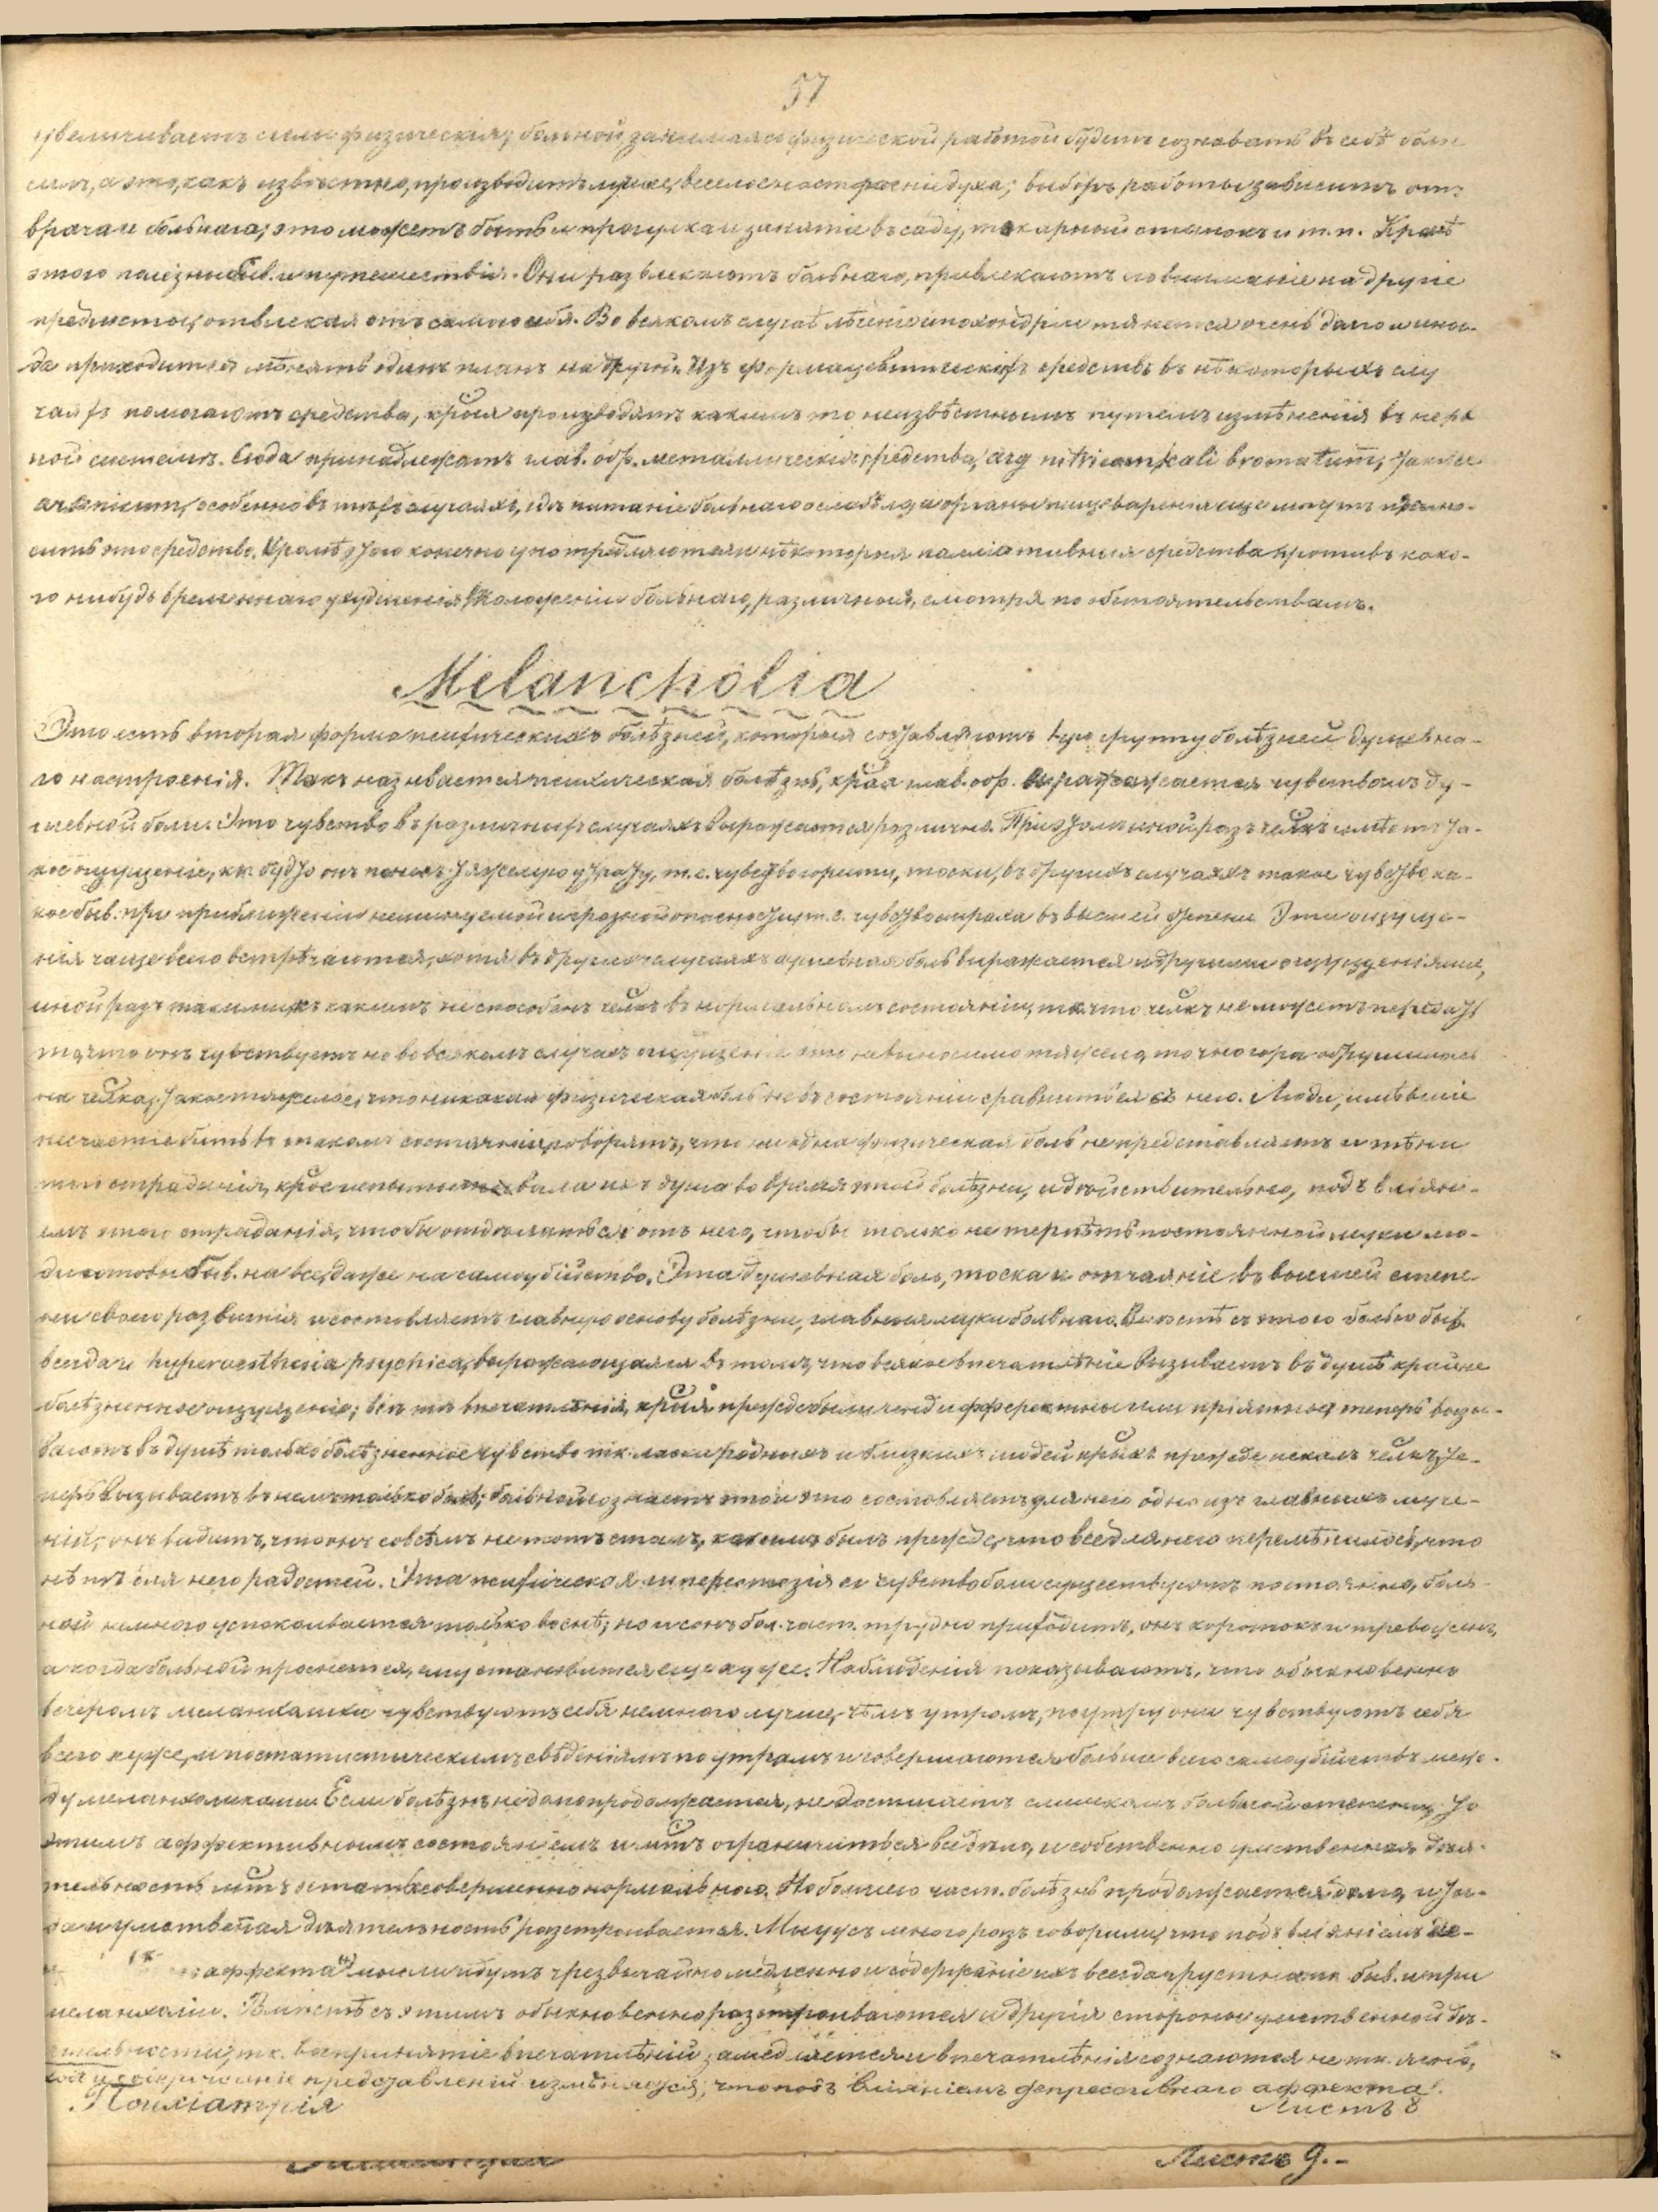 57
увеличиваетъ силы физическія; больной, занимаясь физической работой будетъ сознавать въ себѣ болѣе
силъ, а это, какъ извѣстно, производитъ лучшее, веселое настроеніе духа; выборъ работы зависитъ отъ
врача и больнаго; это можетъ быть и прогулка и занятіе въ саду, токарный станокъ и т. п. Кромѣ
этого полезны быв. и путешествія. Они развлекаютъ больнаго, привлекаютъ его вниманіе на другіе
предметы, отвлекая отъ самого себя. Во всякомъ случаѣ лѣченіе ипохондріи тянется очень долго и иног-
да приходится мѣнять одинъ планъ на другой. Изъ фармацевтическихъ средствъ въ нѣкоторыхъ слу
чаяхъ помогаютъ средства, крыя производятъ какимъ то неизвѣстнымъ путемъ измѣненія въ нерв
ной системѣ. Сюда принадлежатъ глав. обр. металлическія средства, arg nitricum, kali bromatum, также
arsenicum, особенно въ тѣхъ случаяхъ, гдѣ питаніе больнаго ослабѣло, а органы пищеваренія еще могутъ перено-
сить это средство. Кромѣ этого конечно употребляются и нѣкоторыя палліативныя средства противъ како-
го нибудь временнаго ухудшенія въ положеніи больнаго, различныя, смотря по обстоятельствамъ.
Melancholia
Это есть вторая форма психическихъ болѣзней, которыя составляютъ 1ую группу болѣзней душевна-
го настроенія. Такъ называется психическая болѣзнь, края глав. обр. выражается чувствомъ ду-
шевной боли. Это чувство въ различныхъ случаяхъ выражается различно. При этомъ иной разъ челкъ имѣетъ та-
кое ощущеніе, кк. будто онъ понесъ тяжелую утрату, т. е. чувство горести, тоски, въ другихъ случаяхъ такое чувство, ка-
кое быв. при приближеніи неминуемой и грозной опасности, т. е. чувство страха въ высшей степени. Эти ощуще-
нія чаще всего встрѣчаются, хотя въ другихъ случаяхъ душевная боль выражается и другими ощущеніями,
иной разъ такими, къ какимъ не способенъ челкъ въ нормальномъ состояніи, тк. что челкъ не можетъ передать
то, что онъ чувствуетъ но во всякомъ случаѣ ощущеніе это невыносимо тяжело, точно гора обрушилась
на челка, такое тяжелое, что никакая физическая боль не въ состояніи сравниться съ нею. Люди, имѣвшіе
несчастіе быть въ такомъ состояніи, говорятъ, что ни одна физическая боль не представляетъ и тѣни
того страданія, крое испытывала ихъ душа во время этой болѣзни, и дѣйствительно, подъ вліяні-
емъ этого страданія, чтобы отдѣлаться отъ него, чтобы только не терпѣть постоянной муки лю-
ди готовы быв. на все, даже на самоубійство. Эта душевная боль, тоска и отчаяніе въ высшей степе-
ни своего развитія и составляетъ главную основу болѣзни, главныя муки больнаго. Вмѣстѣ съ этою болью быв.
всегда и hyperaesthesia psychica, выражающаяся въ томъ, что всякое впечатлѣніе вызываетъ въ душѣ крайне
болѣзненное ощущеніе; всѣ тѣ впечатлѣнія, крыя прежде были индифферентны или пріятны, теперь вызы-
ваютъ въ душѣ только болѣзненное чувство тк. ласки родныхъ и близкихъ людей крыхъ прежде искалъ челкъ, те-
перь вызываетъ въ немъ только боль; больной сознаетъ это и это составляетъ для него одно изъ главныхъ муче-
ній; онъ видитъ, что онъ совсѣмъ не тотъ сталъ, какимъ былъ прежде, что все для него перемѣнилось, что
нѣтъ для него радостей. Эта психическая гиперестезія и чувство боли существуютъ постоянно, боль-
ной немного успокоивается только во снѣ; но и сонъ бол. част. трудно приходитъ, онъ коротокъ и тревоженъ,
а когда больной проснется, ему становится еще хуже. Наблюденія показываютъ, что обыкновенно
вечеромъ меланхолики чувствуютъ себя немного лучше, чѣмъ утромъ, поутру они чувствуютъ себя
всего хуже, и по статистическимъ свѣдѣніямъ по утрамъ и совершаются больше всего самоубійствъ меж-
ду меланхоликами. Если болѣзнь недолго продолжается, не достигаетъ слишкомъ большой степени, то
этимъ аффективнымъ состояніемъ и мтъ ограничиться все дѣло, и собственно умственная дѣя-
тельность мтъ остаться совершенно нормальною. Но большею част. болѣзнь продолжается долго, и тог-
да и умственная дѣятельность разстроивается. Мы ужъ много разъ говорили, что подъ вліяніемъ де-
аффекта мысли идутъ чрезвычайно медленно и содержаніе ихъ всегда грустно, тк. быв. и при
меланхоліи. Вмѣстѣ съ этимъ обыкновенно разстроиваются и другія стороны умственной дѣ-
ятельности, тк. воспріятіе впечатлѣній замедляется и впечатлѣнія сознаются не тк. ясно,
ходъ и содержаніе представленій измѣняются, что подъ вліяніемъ депрессивнаго аффекта.
Психіатрія Листъ 8
Листъ 9.-